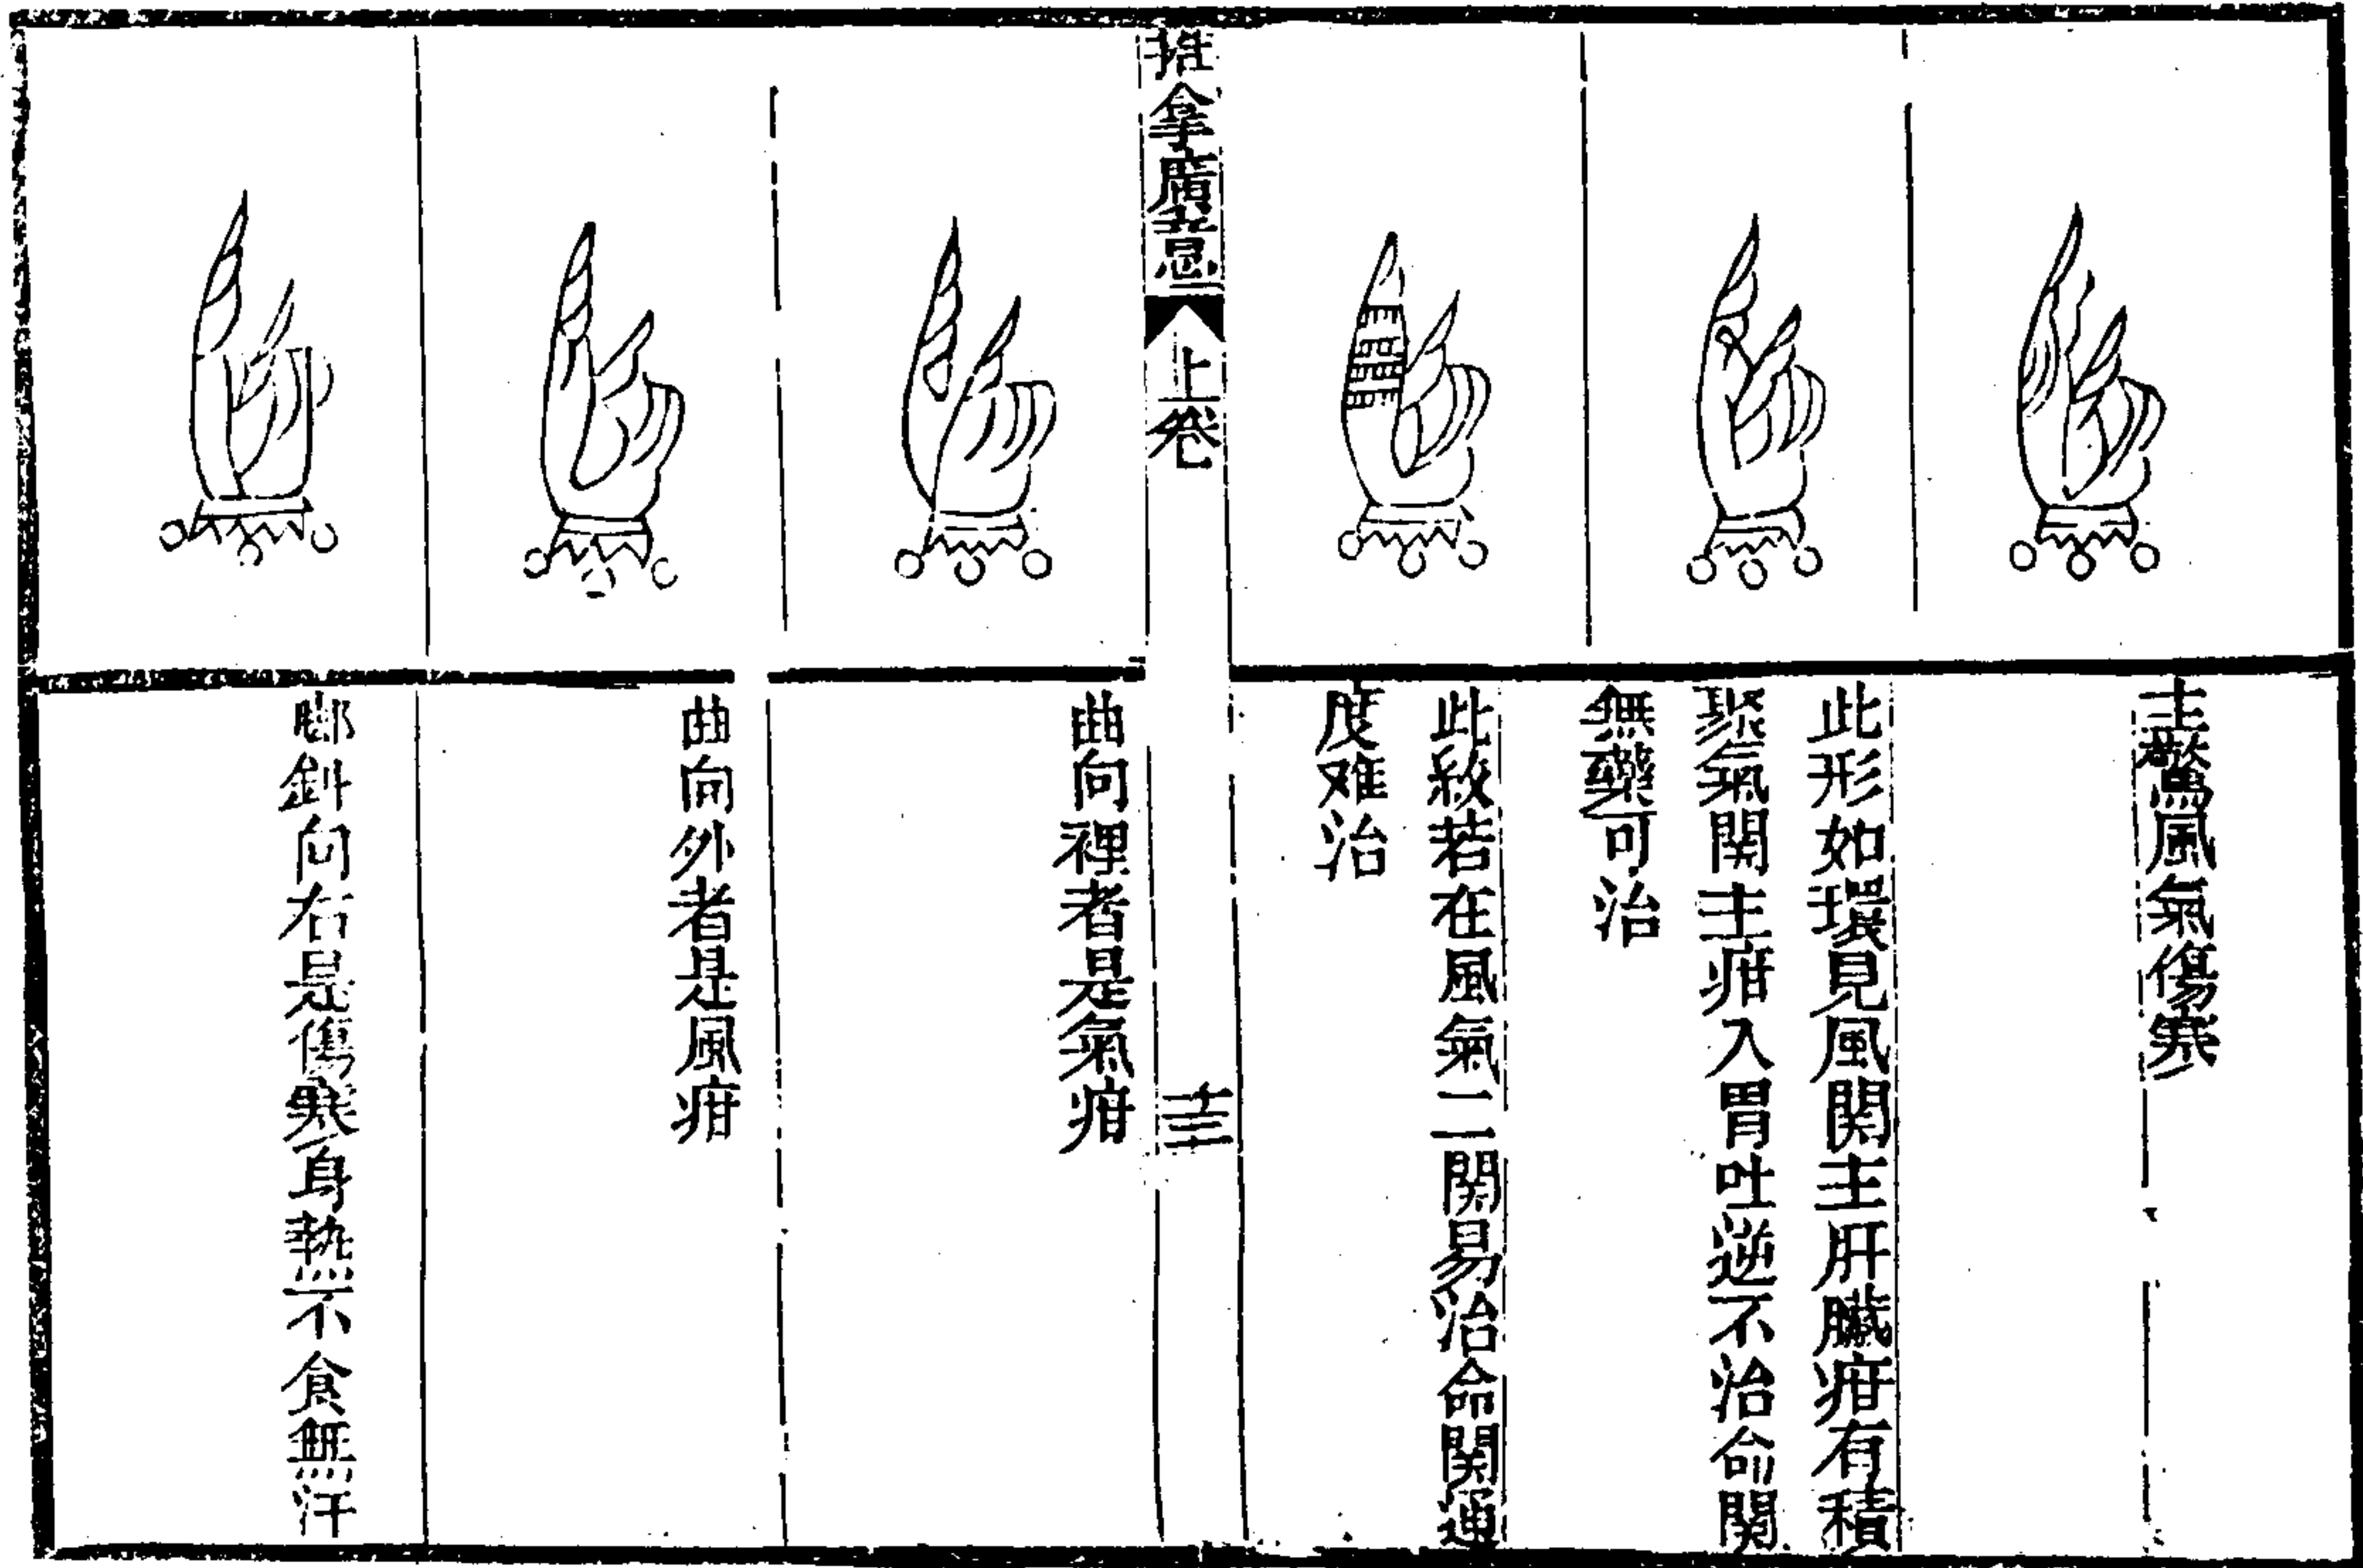 主驚風氣傷寒
此形如環見風関主肝臟疳有積
聚氣関主疳入胃吐逆不治命関
無藥可治
此紋若在風氣二関易治命関通
度难治
推拿廣意
上卷
十三
曲向裡者是氣疳
曲向外者是風疳
脚斜向右是傷寒身熱不食無汗